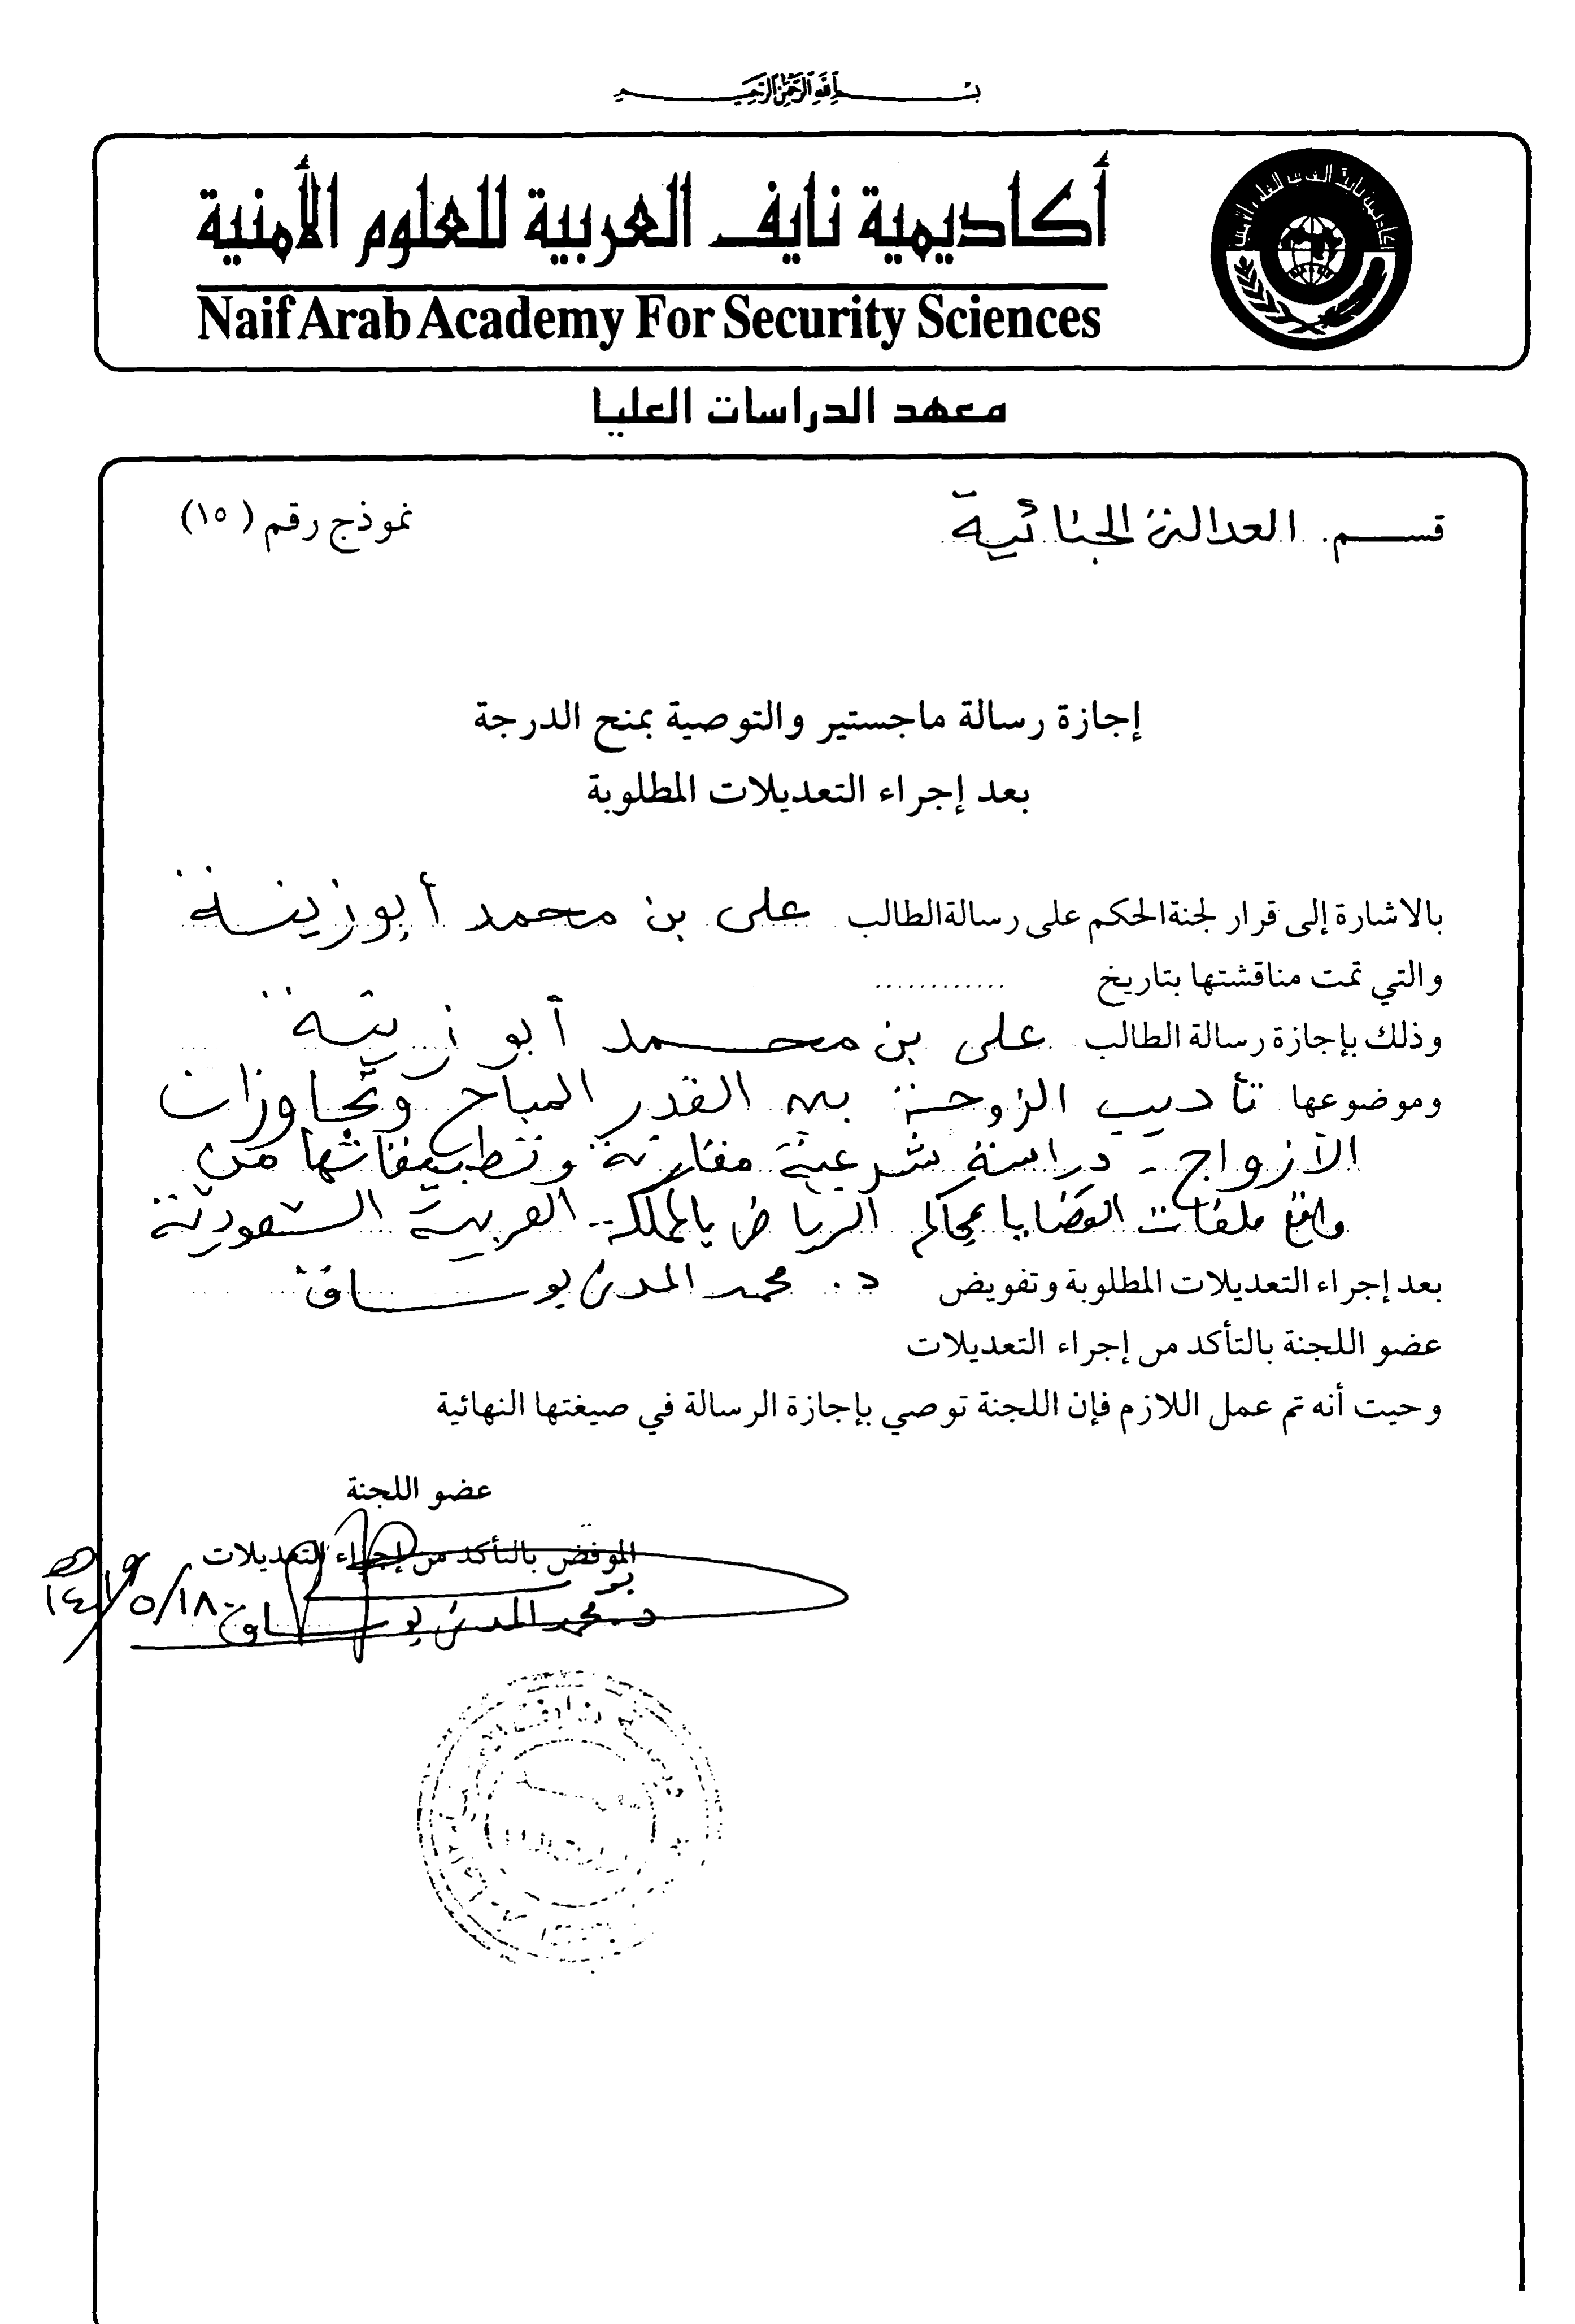 بسم الله الرحمن الرحيم
أكاديمية نايف العربية للعلوم الأمنية
Naif Arab Academy For Security Sciences
معهد الدراسات العليا
قسم. العدالة الجنائية
نموذج رقم (١٥)
إجازة رسالة ماجستير والتوصية بمنح الدرجة
بعد إجراء التعديلات المطلوبة
بالاشارة إلى قرار لجنة الحكم على رسالة الطالب على بن محمد أبوزينة
والتي تمت مناقشتها بتاريخ ............
وذلك بإجازة رسالة الطالب على بن محمد أبو زينة
وموضوعها تأديب الزوجة بين القدر المباح وتجاوزات
الأزواج - دراسة شرعية مقارنة وتطبيقاتها من
واقع ملفات القضايا بمحاكم الرياض بالمملكة العربية السعودية
بعد إجراء التعديلات المطلوبة وتفويض د. محمد المدني بوساق
عضو اللجنة بالتأكد من إجراء التعديلات
وحيت أنه تم عمل اللازم فإن اللجنة توصي بإجازة الرسالة في صيغتها النهائية
عضو اللجنة
الموفض بالتأكد من إجراء التعديلات
د. محمد المدني بوساق